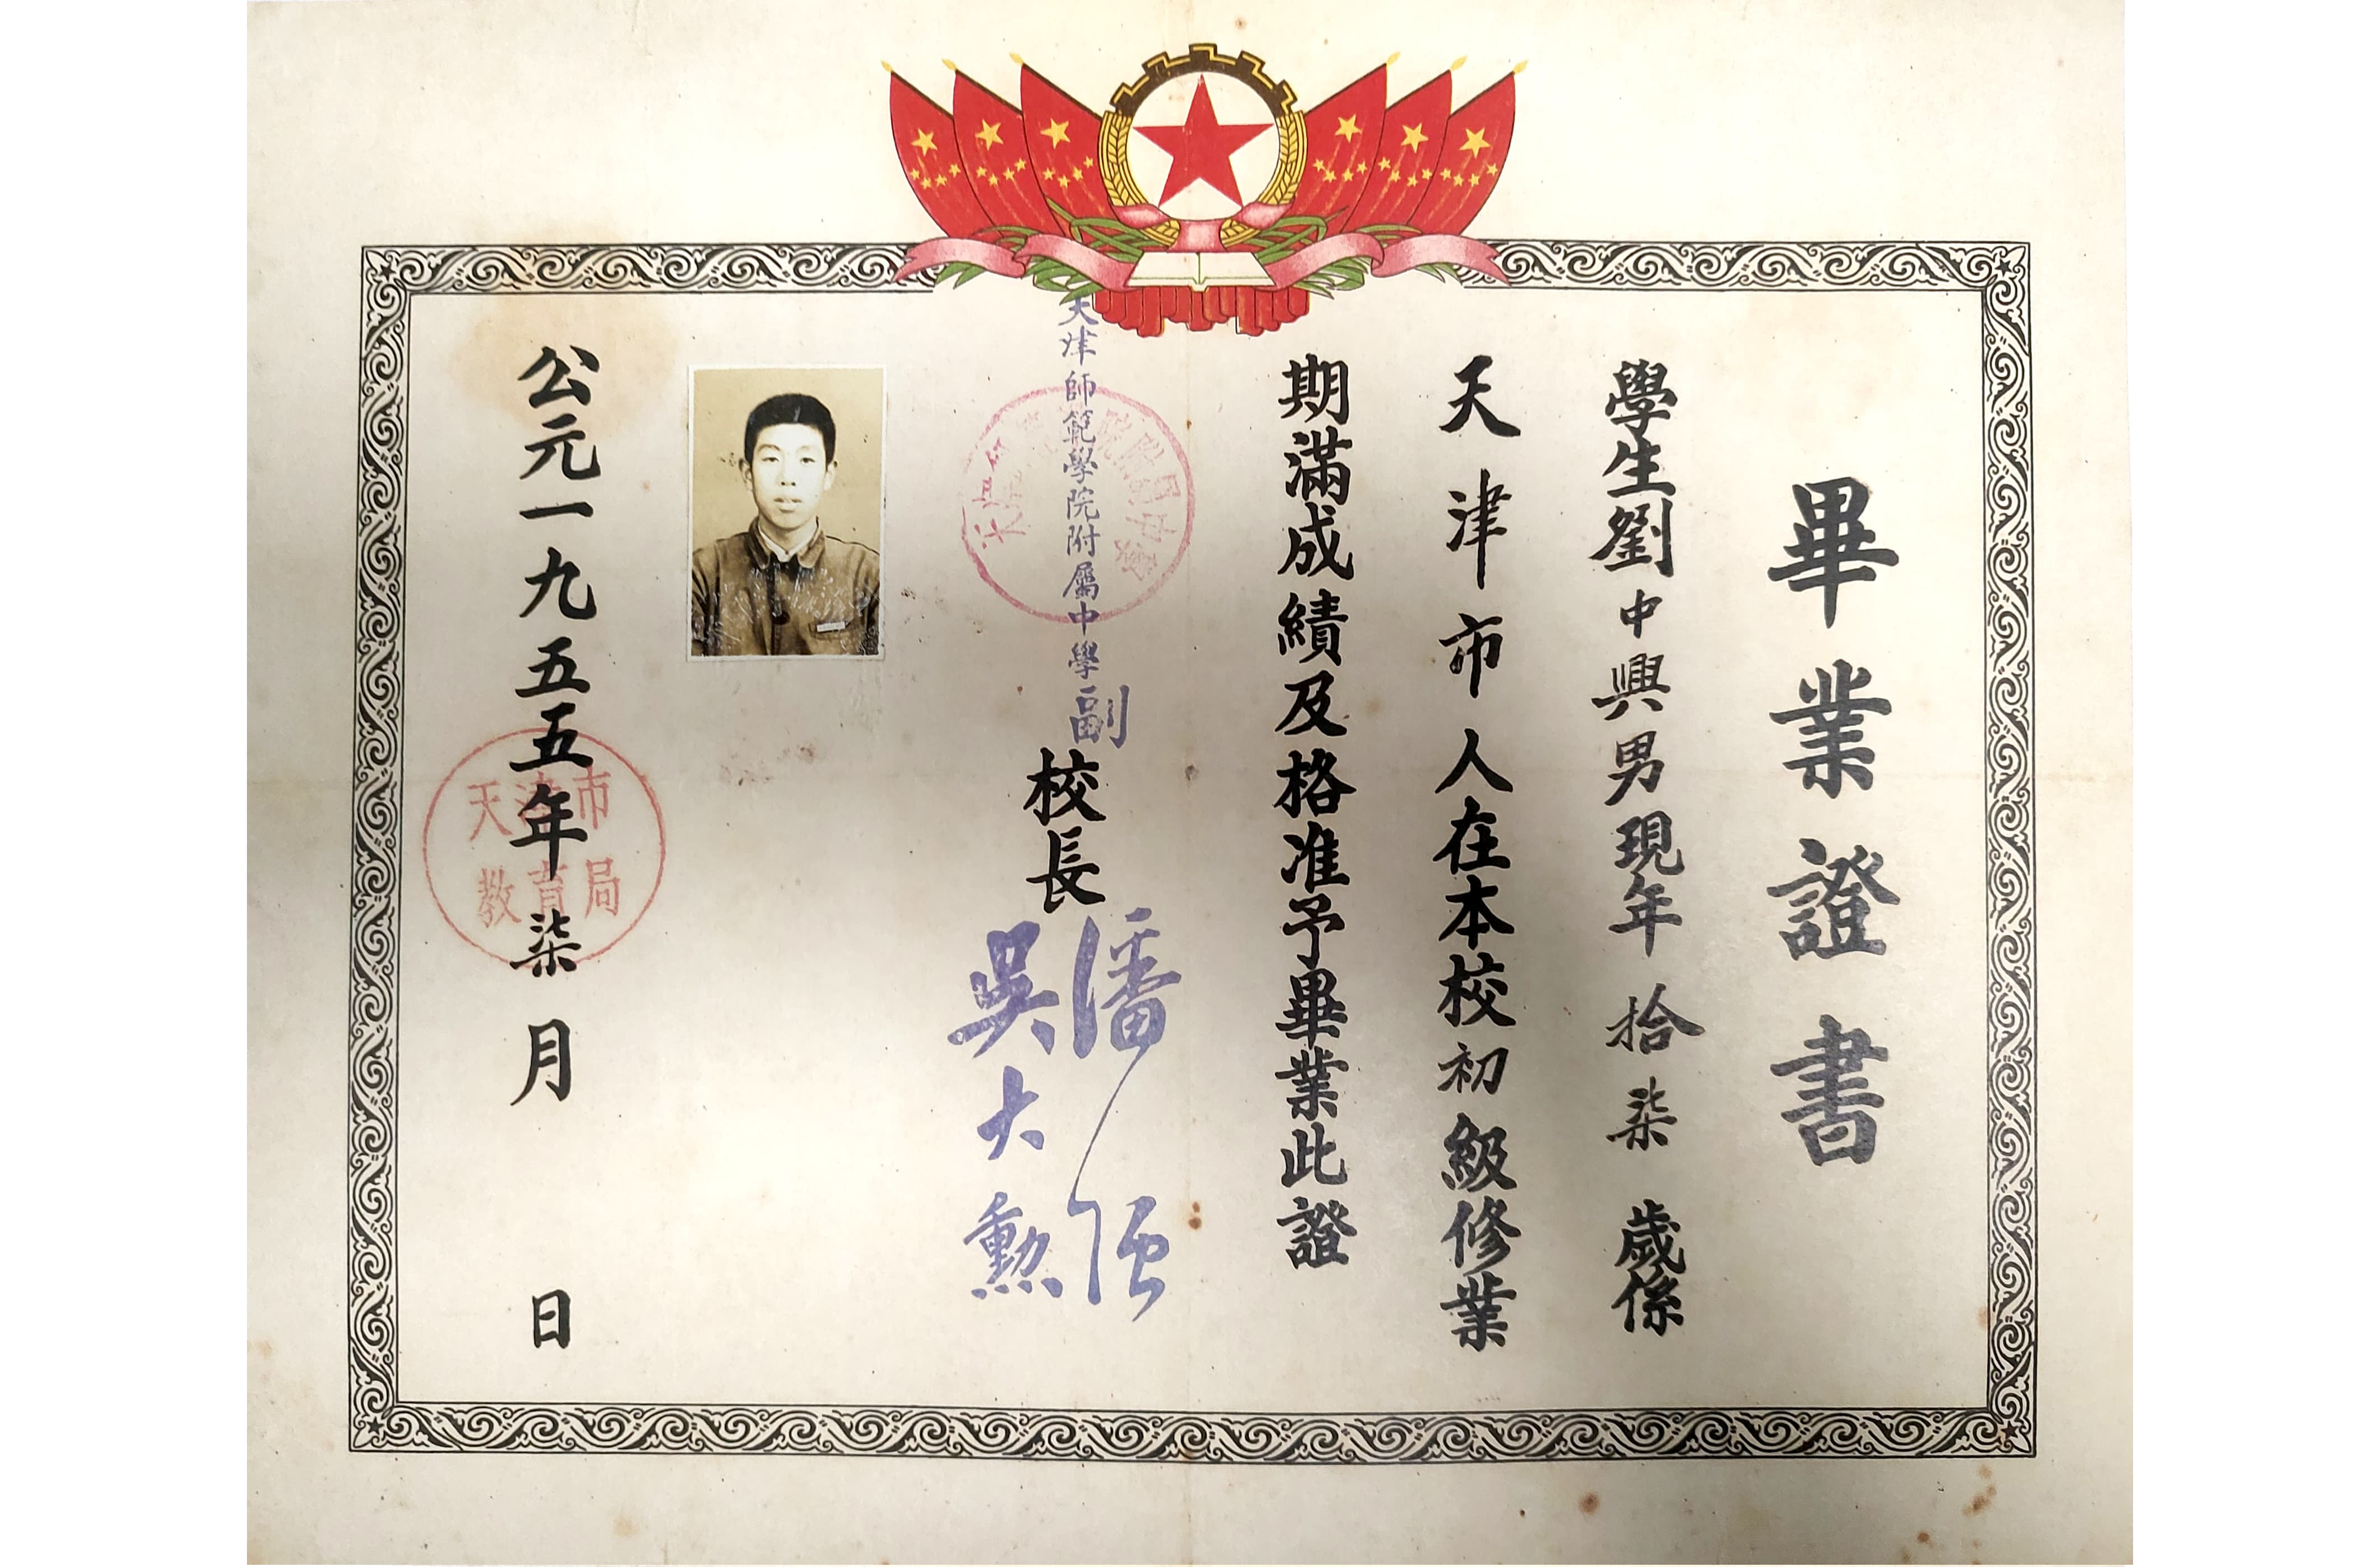 畢業證書
學生劉中興男現年拾柒歲係
天津市人在本校初級修業
期滿成績及格准予畢業此證
天津師範學院附屬中學副
校長
潘強
吳大勳
公元一九五五年柒月 日
天津市
教育局